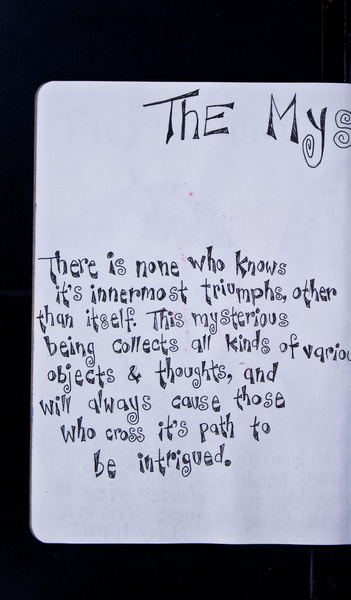 The Mys
There is none who knows
it's innermost triumphs, other
than itself. This mysterious
being collects all kinds of variou
objects & thoughts, and
will always cause those
who cross it's path to
be intrigued.